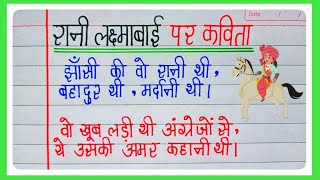 Date / /
रानी लक्ष्माबाई पर कविता
झाँसी की वो रानी थी,
बहादुर थी, मर्दानी थी।
वो खूब लड़ी थी अंग्रेजों से,
ये उसकी अमर कहानी थी।